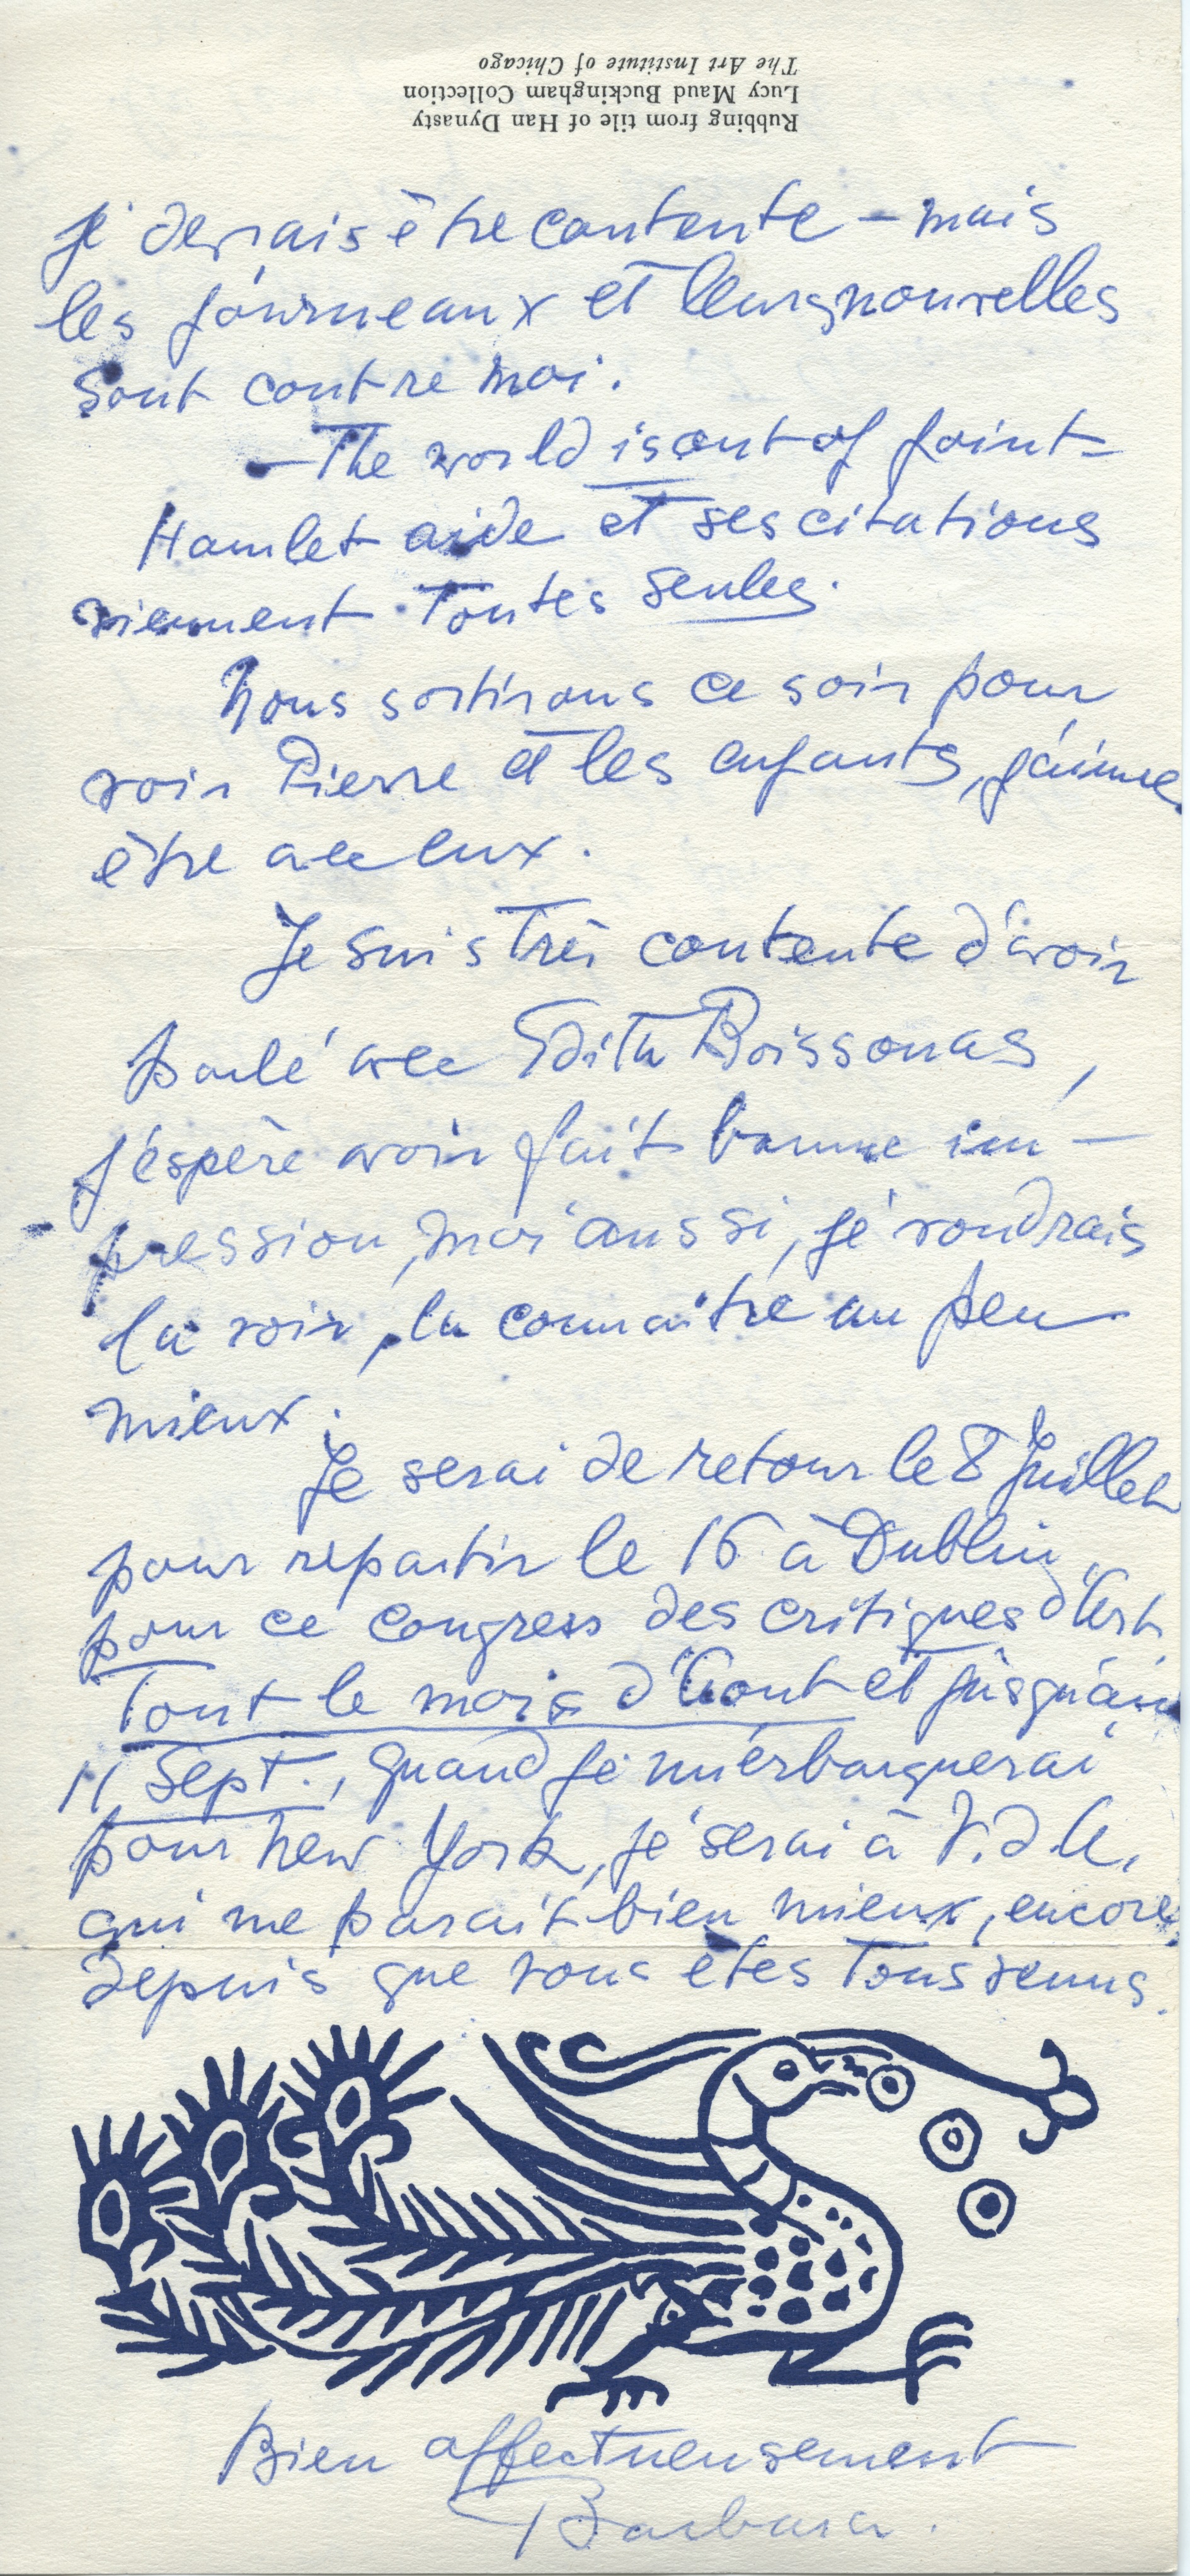 Rubbing from tile of Han Dynasty
Lucy Maud Buckingham Collection
The Art Institute of Chicago
je devrais être contente – mais
les journeaux et leurs nouvelles
sont contre moi.
– The world is out of joint –
Hamlet aide et ses citations
viennent toutes seules.
Nous sortirons ce soir pour
voir Pierre et les enfants, j'aime
être avec eux.
Je suis très contente d'avoir
parlé avec Edith Boissonas,
j'éspère avoir fait bonne im-
pression, moi aussi, je voudrais
la voir, la connaître un peu
mieux.
Je serai de retour le 8 Juillet
pour repartir le 16 à Dublin
pour ce congress des critiques d'Art.
Tout le mois d'Aout et jusqu'au
11 Sept., quand je m'erbarquerai
pour New York, je serai à V. d A.
qui me parait bien mieux, encore
depuis que vous êtes tous venus.
Bien affectueusement
Barbara.